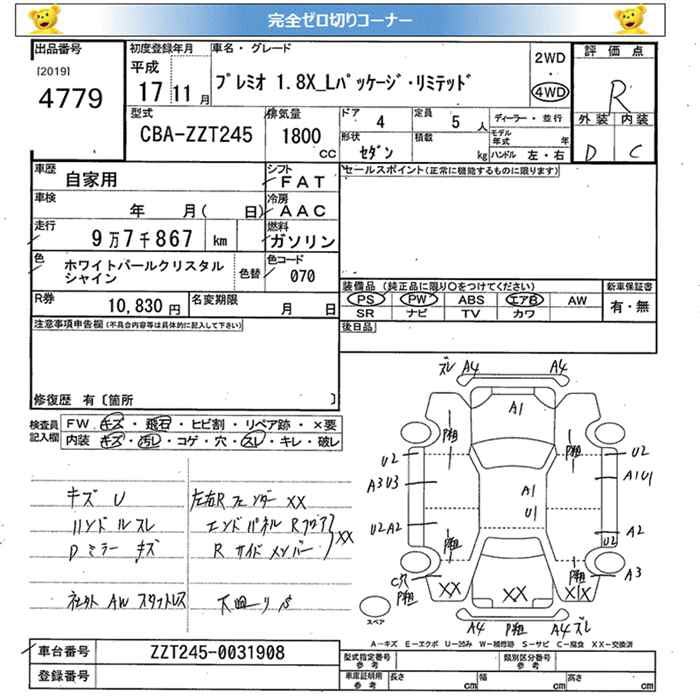 完全ゼロ切りコーナー
出品番号 初度登録年月 車名・グレード 評価点
[2019] 4779
平成 17 11 月
プレミオ 1.8X_Lパッケージ・リミテッド
2WD 4WD
R
型式 CBA-ZZT245
排気量 1800 cc
ドア 4 定員 5 人 ディーラー・並行
形状 セダン 積載 kg モデル年式 年 ハンドル 左・右
外装 内装
D C
車歴 自家用
シフト FAT
セールスポイント(正常に機能するものに限ります)
車検 年 月( 日)
冷房 AAC
走行 9万7千867 km
燃料 ガソリン
色 ホワイトパールクリスタル シャイン 色替
色コード 070
装備品(純正品に限り○をつけてください) 新車保証書
PS PW ABS エアB AW 有・無
SR ナビ TV カワ
R券 10,830 円 名変期限 月 日
後日品
注意事項申告欄(不具合内容等は具体的に記入して下さい)
修復歴 有〔箇所 〕
検査員記入欄
FW キズ・飛石・ヒビ割・リペア跡・×要
内装 キズ・汚レ・コゲ・穴・スレ・キレ・破レ
キズ U 左右Rフェンダー XX
ハンドルスレ エンドパネル Rフロア XX
Dミラー キズ Rサイドメンバー
社外 AW スタットレス
ズレ A4 A4
A1
P粗 P粗
U2 U2
A3U3 A1U1
A1
U1
U2A2 A2
U2
P粗 P粗
C穴 A3
P粗
XX XX XX
スペア
A4 P粗 A4 ズレ
A-キズ E-エクボ U-凹み W-補修跡 S-サビ C-腐食 XX-交換済
車台番号 ZZT245-0031908
型式指定番号 参考 類別区分番号 参考
登録番号
車庫証明用 参考 長さ cm 幅 cm 高さ cm